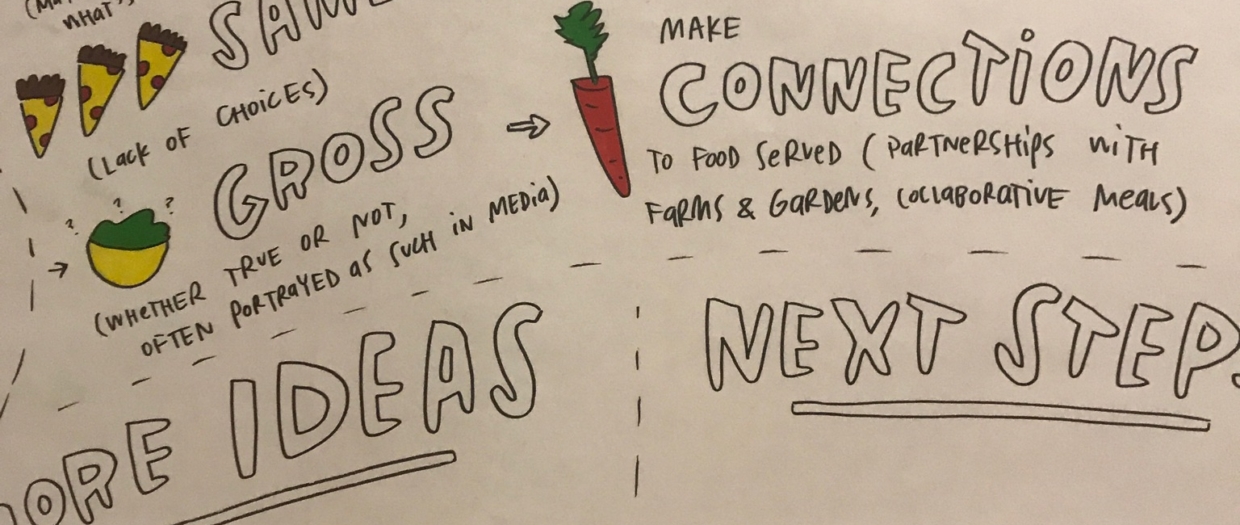 WHAT
SAM
(Lack OF CHOiCEs)
GROSS
(WHETHER TRUE OR NOT,
OFTEN PORTRAYED as SUCH iN MEDia)
MAKE
CONNECTiONS
TO FOOD SeRVeD (PaRTNeRSHips WiTH
FaRMS & GaRDeNS, COLLABORaTiVE Meals)
MORE IDEAS
NEXT STEPS
? ? ?